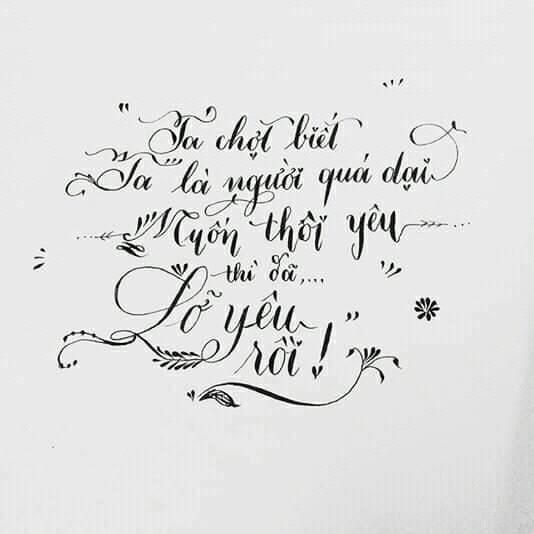 " Ta chợt biết
Ta là người quá dại
Muốn thôi yêu
thì đã,...
Lỡ yêu "
rồi !